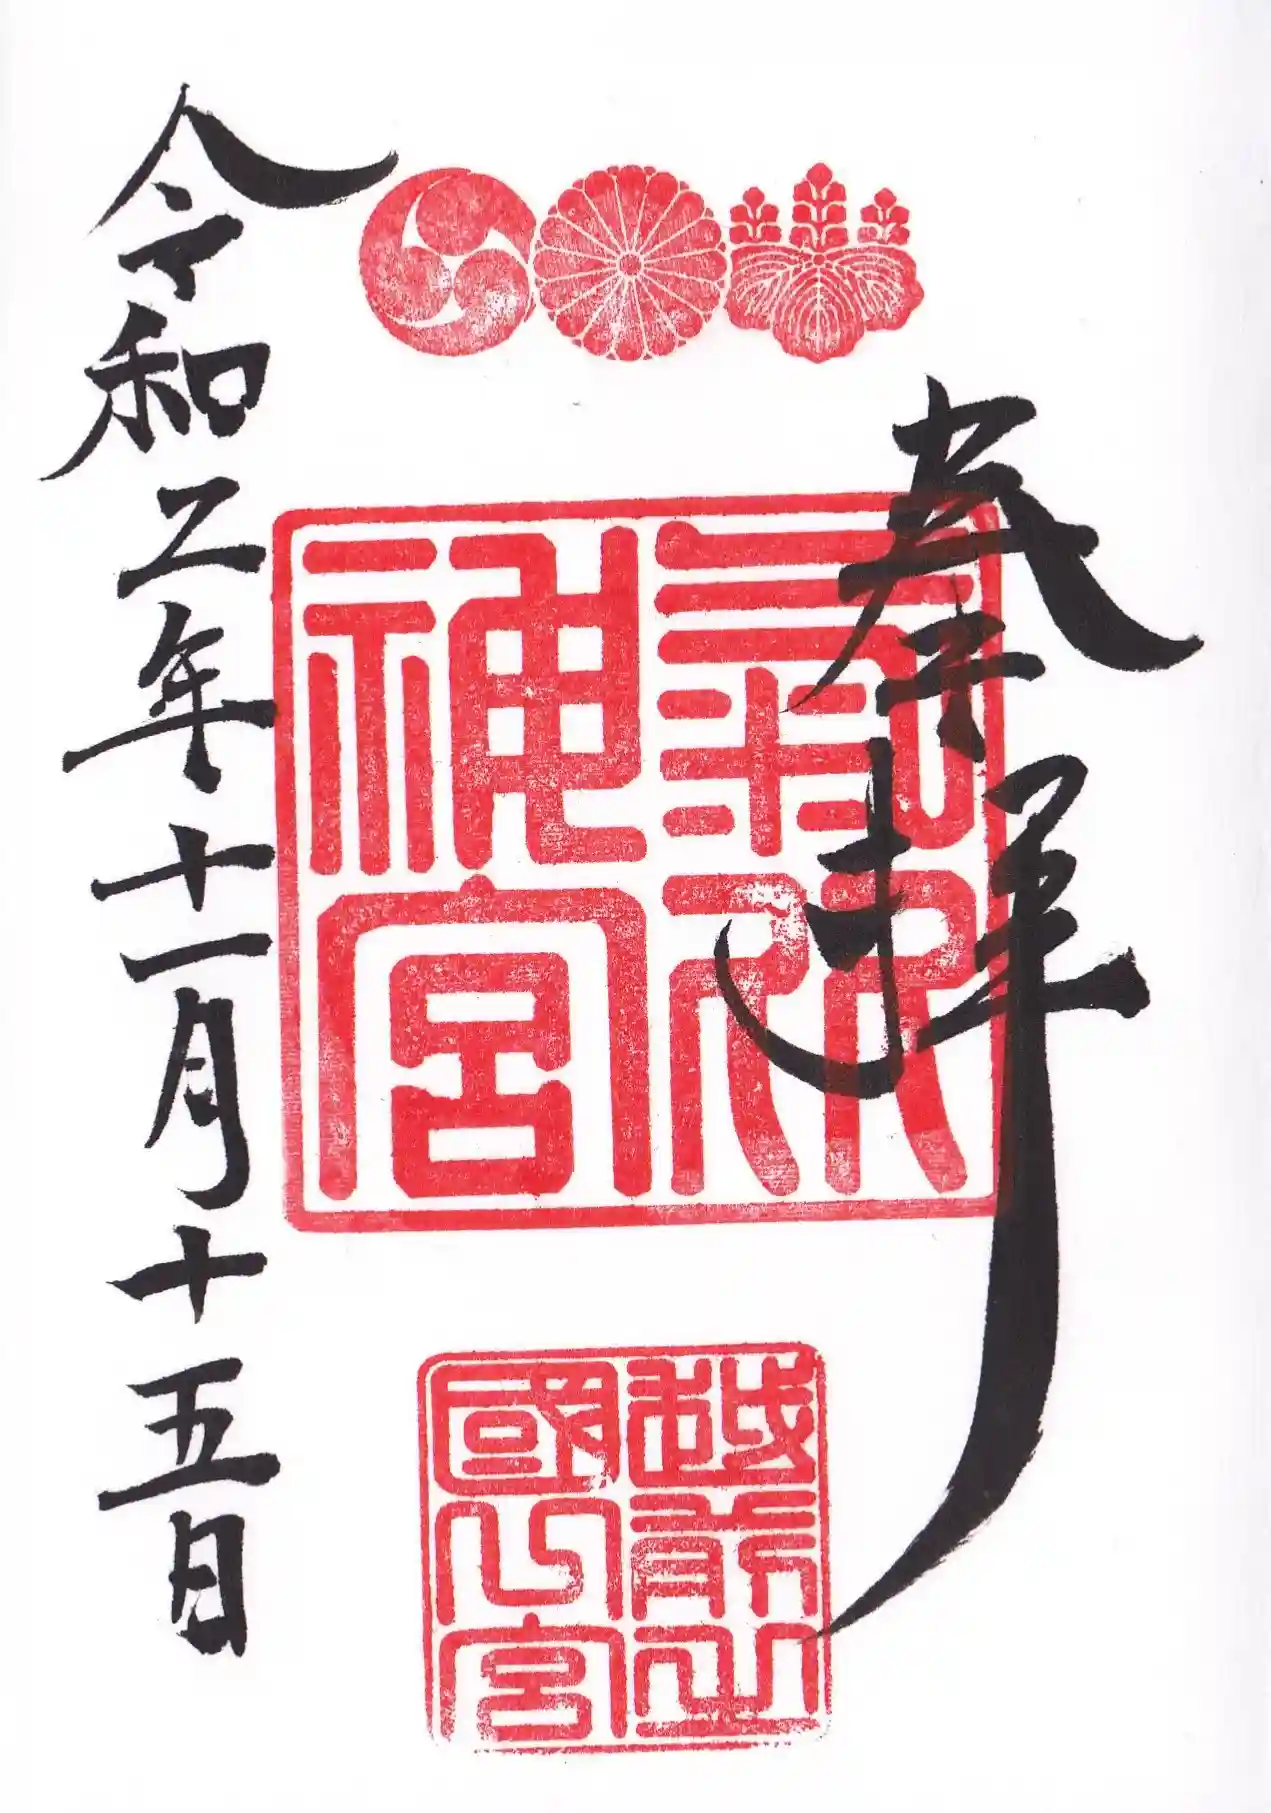 奉拝
氣比
神宮
越前之
國一宮
令和二年十一月十五日